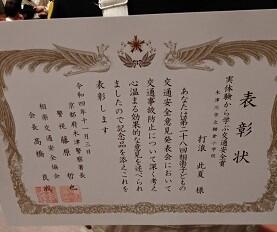 表彰状
実体験から学ぶ交通安全賞
木津川市立相楽小学校
打浪 此夏 様
あなたは第二十八回相楽子どもの
交通安全意見発表会において
交通事故防止について深く考え
心温まる効果的な意見を述べられ
ましたので記念品を添えこれを
表彰します
令和四年十一月三日
京都府木津警察署長
警視 藤原 哲也
相楽交通安全協会
会長 高橋 良